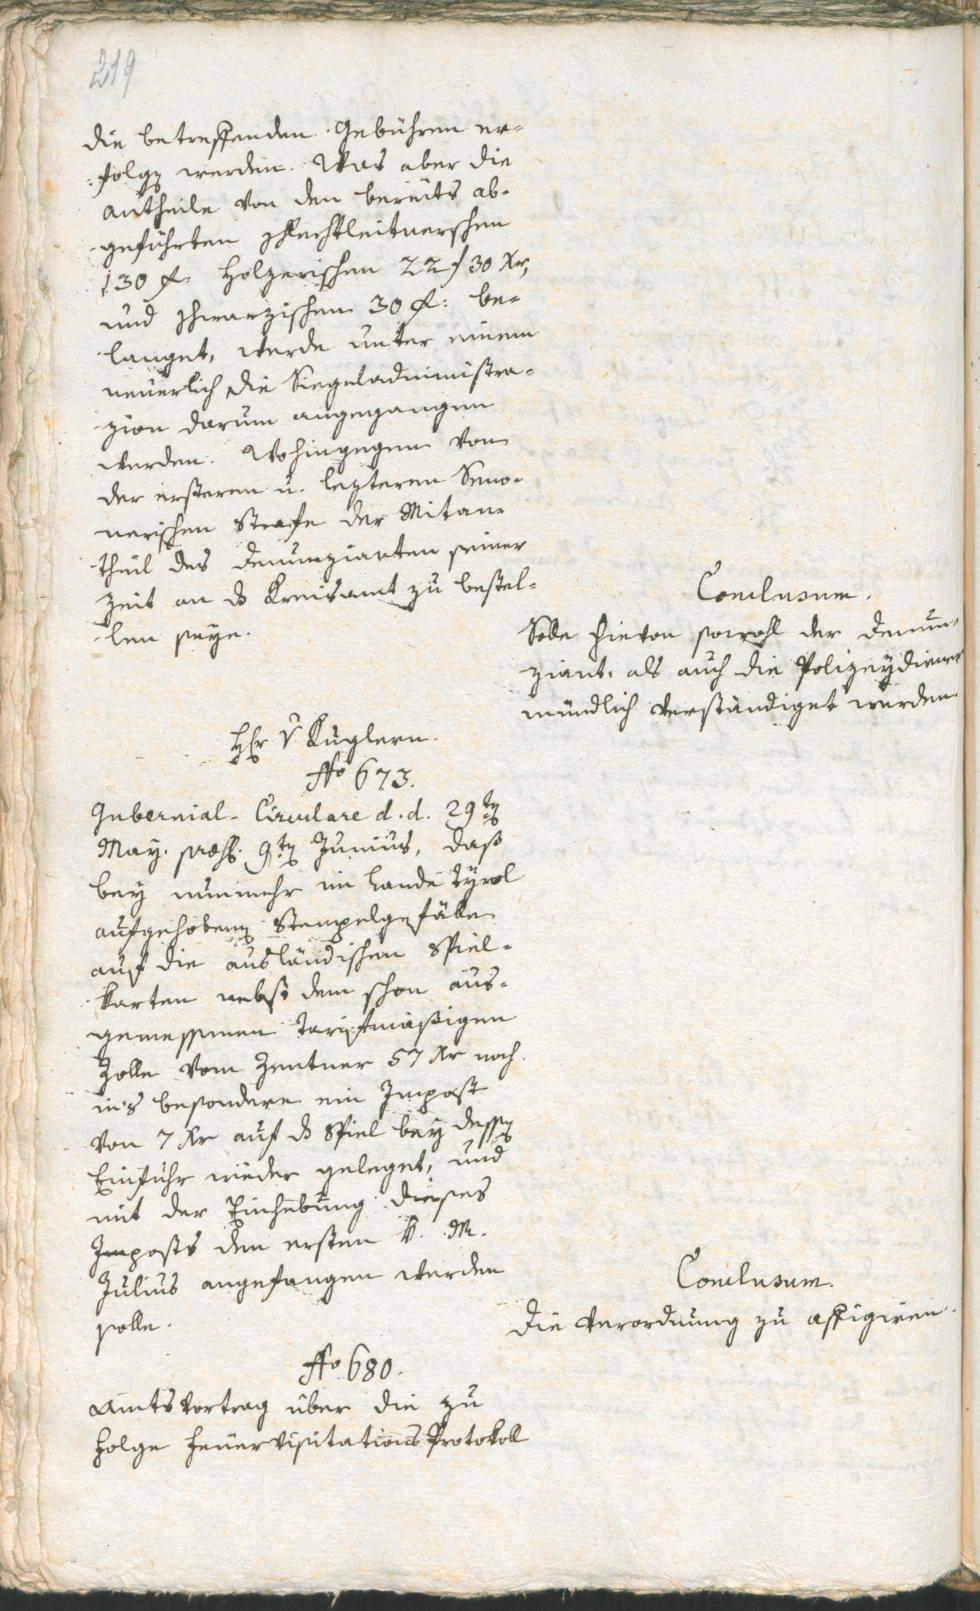 219
die betreffenden Gebühren er-
folgen werden. Was aber die
Antheile von den bereits ab-
geführten Pflechtleitnerschen
130 f. Holzerischen 22 f 30 Xr,
und Schwarzischen 30 f: be-
langet, werde unter einem
neuerlich die Siegeladministra-
zion darum angegangen
werden. Wohingegen von
der ersteren u. lezteren
nerischen Strafe der Mitan-
theil des Denunzianten seiner
Zeit an das Kreisamt zu bestel-
len seye.
Conclusum.
Solle hievon sowohl der Denun-
ziant, als auch die Polizeydiener
mündlich verständiget werden.
Hr v Kuglern.
No 673.
Gubernial-Circulare d. d. 29ten
May. praes. 9ten Junius, daß
bey nunmehr im Lande Tyrol
aufgehobenen Stempelgefälle
auf die ausländischen Spiel-
karten nebst dem schon aus-
gemessenen Tariffmäßigen
Zolle vom Zentner 57 Xr noch
ins besondere ein Impost
von 7 Xr auf das Spiel bey dessen
Einfuhr wieder geleget, und
mit der Einhebung dieses
Imposts den ersten k. M.
Julius angefangen werden
solle.
Conclusum.
Die Verordnung zu affigiren.
No 680.
Amtsvortrag über die zu
Folge Feuervisitations Protokoll